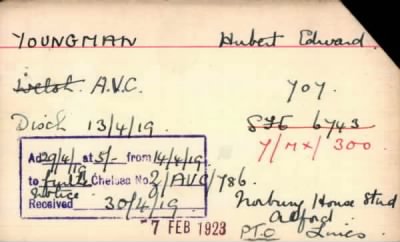 YOUNGMAN Hubert Edward.
Welsh. A.V.C. YOY.
Disch 13/4/19. SFE 6743
Y/MX/300
Ad 29/4/19 at 5/- from 14/4/19
to further Chelsea No 2/AVC/786.
notice
Received 30/4/19.
Norbury House Stud
Alford.
P.T.O. Lincs
7 FEB 1923